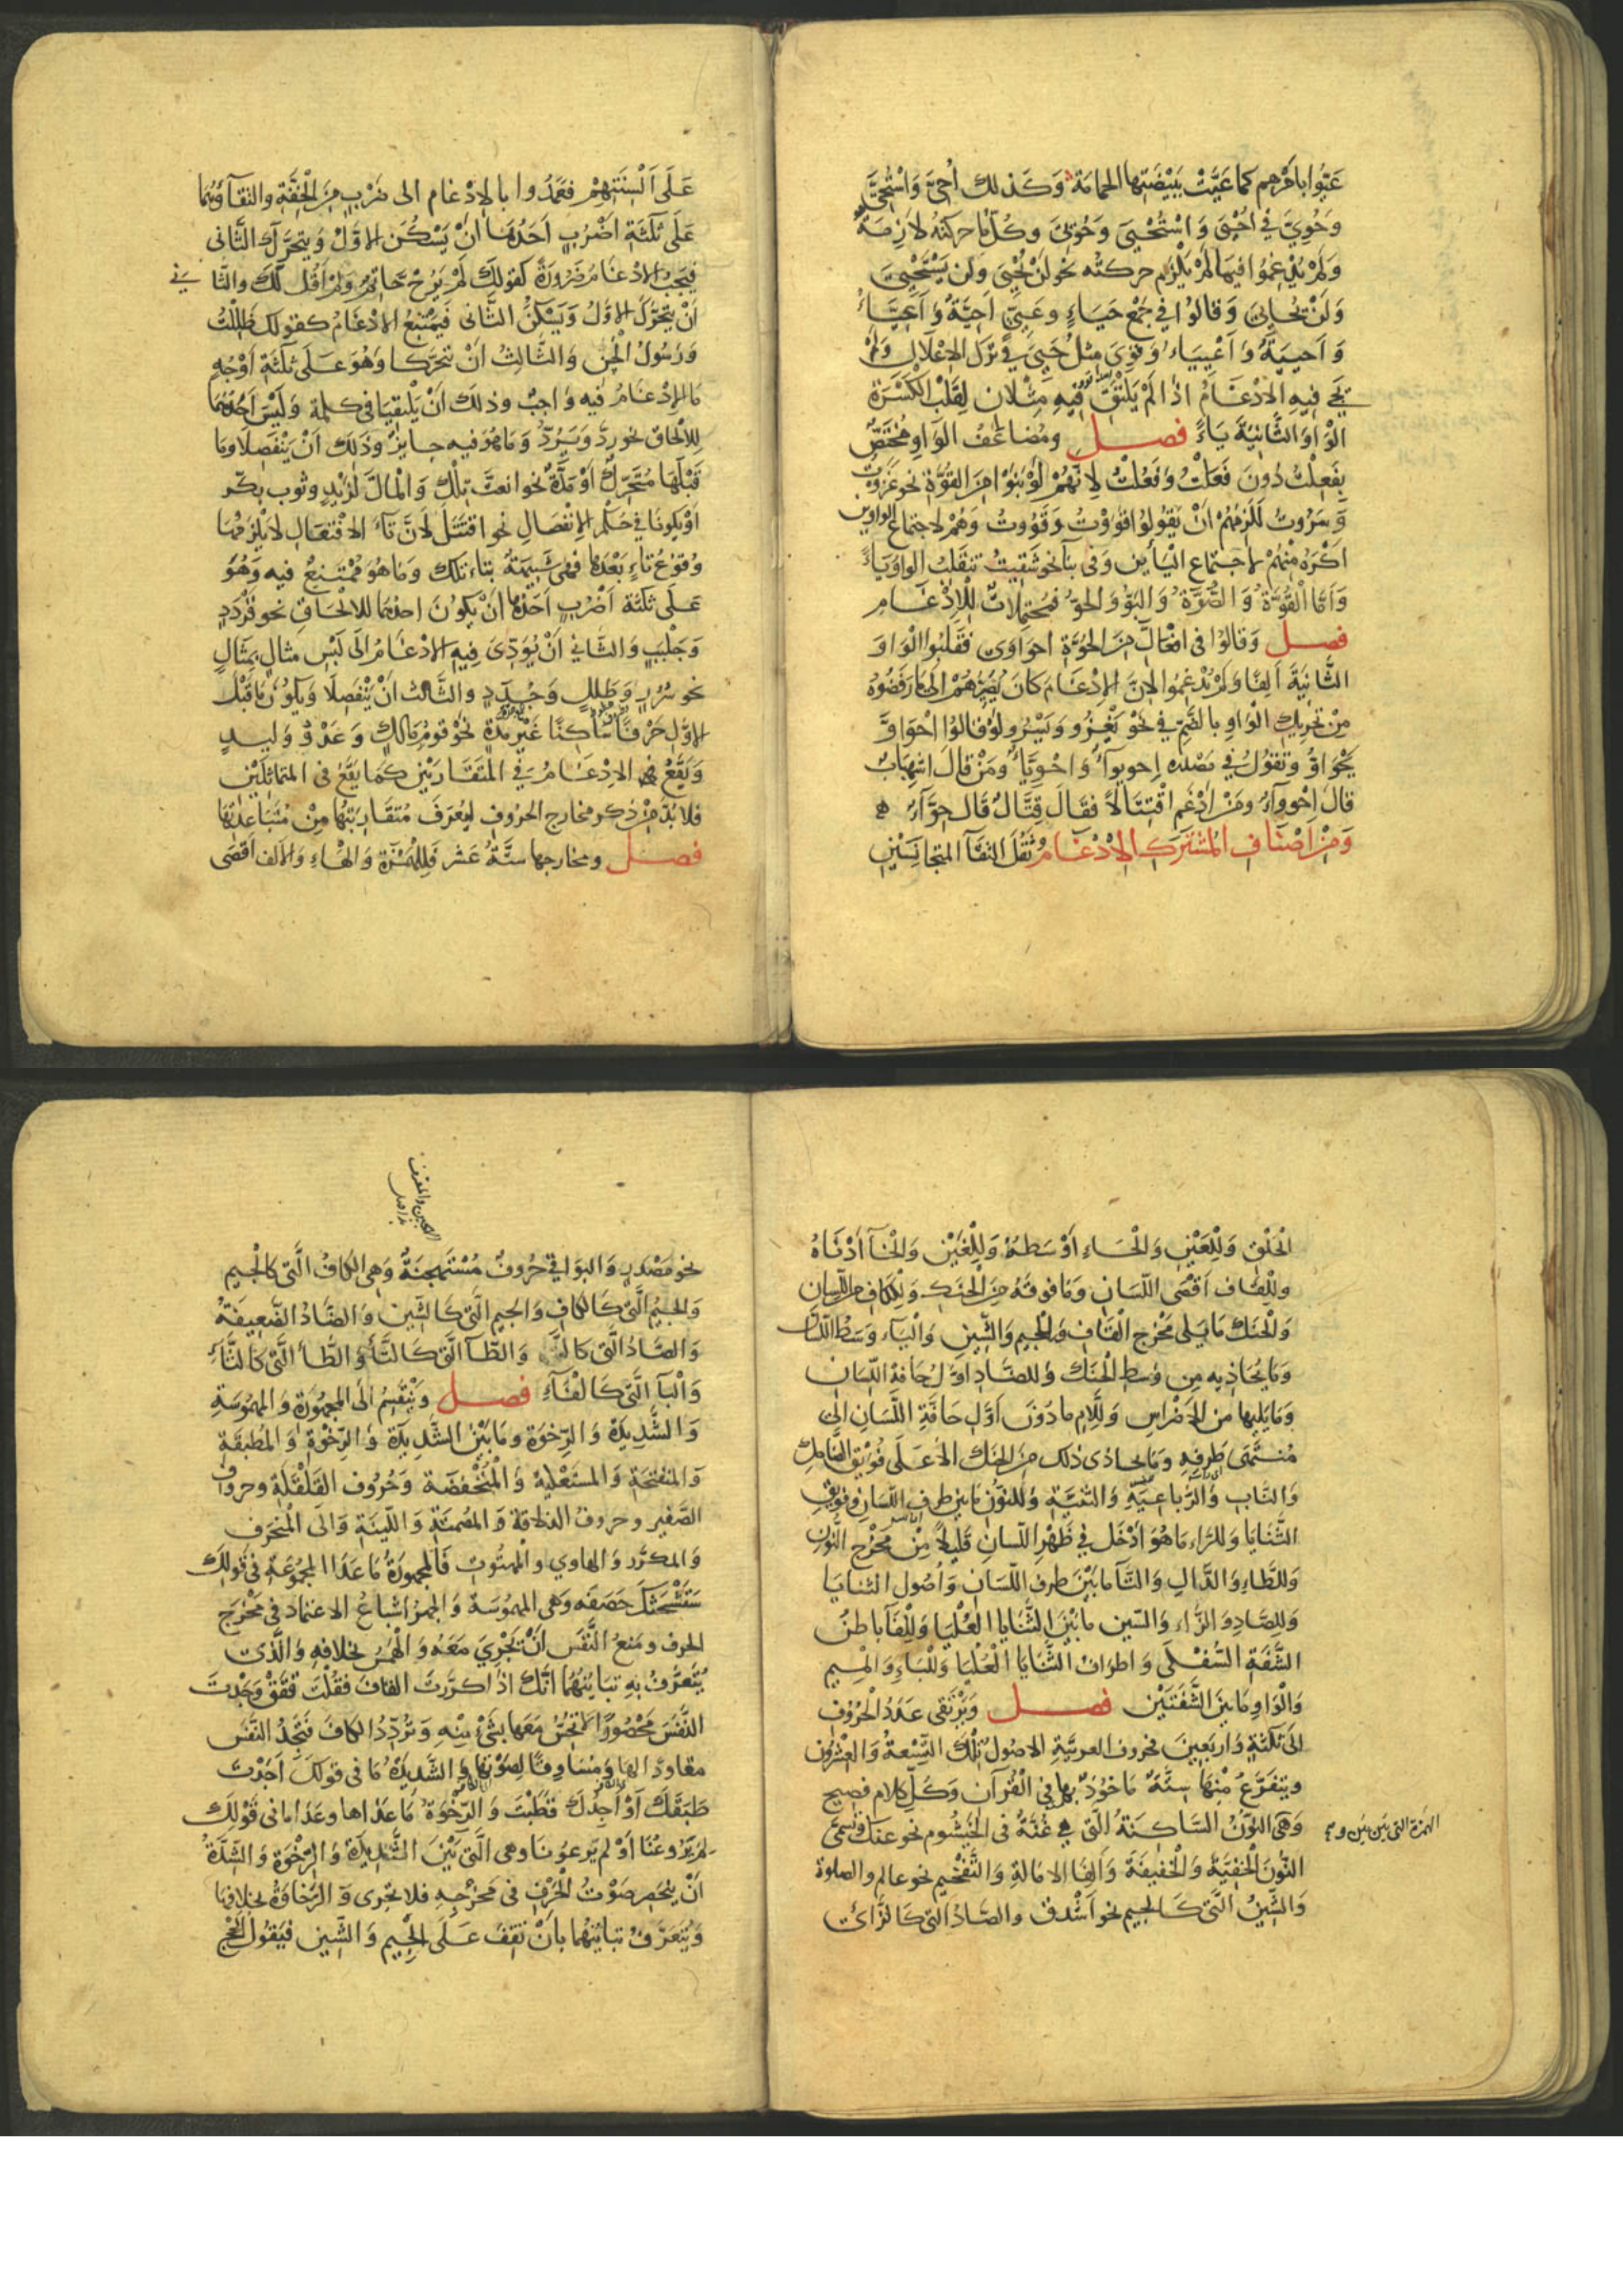 عَيُّوا بأمرهم كما عَيَّتْ بِبَيْضَتِها الحمامَة وَكذلك أُحِيَّ وَاسْتُحِيَّ
وَحُويَّ في اُحْيِىَ وَاسْتُحْيِىَ وَحُويىَ وكلّ ما حركته لازمة
وَلَمْ يُدْغِمُوا فيما لَمْ يَلْزم حركته نحو لَنْ يُحْيِىَ وَلَن يَسْتَحْيِىَ
وَلَنْ يُحايِىَ وَقالوُا في جَمْعِ حَيَاءٍ وعَيِىٍّ اَحِيَّةٌ وَاَعِيَّاءُ
وَاَحيِيَةٌ وَاَعْيِيَاءُ وَقَوِىَ مِثلُ حَيِىَ فِى تَرْك الاِعْلالِ وَلَمْ
يَجِئ فيهِ الاِدْغَامُ اذْ لَمْ يَلْتَقِ فيهِ مِثْلانِ لِقَلْبِ الكَسْرَةِ
الوْاوَ الثّانِيَةَ يَاءً فصل ومُضاعَفُ الوَاوِ مُخْتَصٌّ
بِفَعِلْتُ دُونَ فَعَلْتُ وَفَعُلْتُ لِاَنَّهُمْ لَوْ بَنَوْا مِنَ القُوَّةِ نحو غَزَوْتُ
وَسَرُوتُ لَلَزِمَهُمْ اَنْ يَقُولُوا قَوَوْتُ وَقَوُوتُ وَهُمْ لاجتماعِ الواوين
اَكْرَهُ مِنْهُمْ لاجتماع اليَائَين وَفى بناء نحو شَقِيتُ تنقلبُ الواوُ يَاءً
وَاَمَّا القُوَّةُ وَالصُّوَّةُ وَالبَوُّ وَالحوُّ فَمُحتَمِلاتٌ لِلْاِدْغَامِ
فصل وَقالوُا فى افعالَّ مِنَ الحُوَّةِ احوَاوَى فقَلَبُوا الوَاوَ
الثَّانِيَةَ اَلِفًا وَلَمْ يُدْغِمُوا لِاَنَّ الاِدْغَامَ كانَ يُصَيِّرهُمْ اِلَى مَا رَفَضُوهُ
مِنْ تحرِيكِ الْوَاوِ بالضَّمِّ في نحْو يَغْزُوُ وَيَسْرُوُ لوْ قالُوا اِحْوَاوَّ
يَحْوَاوُّ وَتقوُلُ في مَصْدره اِحويوآءٌ وَاحْوِيَّاءٌ وَمَنْ قالَ اشهِبَابٌ
قالَ اِحْوِوآءٌ ومَنْ اَدْغَمَ اقْتِتَالاً فقَالَ قِتَّالٌ قَال حِوَّآءٌ
وَمِنْ اَصْنَافِ المُشْتَرَكِ الاِدْغَامُ ثَقُلَ التقآءُ المتجانِسَيْنِ
عَلَى اَلْسِنَتِهِمْ فعَمَدُوا بالاِدْغام الى ضَرْبٍ مِنَ الْخِفَّةِ والتقآؤُهُما
عَلَى ثَلثَةِ اَضْرُبٍ اَحَدُهَا اَنْ يَسْكُنَ الاَوَّلُ وَيتحَرَّكَ الثَّانى
فيَجبُ الادْغَامُ ضَرُورَةً كقولكَ لَمْ يَرُحْ حَّاتِمٌ وَلَمْ اَقُل لَّكَ والثَّانى
اَنْ يتحَرَّكَ الاَوَّلُ وَيَسْكُنَ الثَّانى فيَمْتَنِعُ الادْغَامُ كقولك ظَلِلْتُ
وَرَسُولُ الْحَسَنِ وَالثَّالِثُ اَنْ يتحَرَّكا وَهُوَ عَلَى ثَلثَةِ اَوْجُهٍ
مَا الاِدْغَامُ فيه وَاجِبٌ وذلكَ اَنْ يَلْتَقِيَا فى كلمة وَلَيْسَ اَحَدُهُمَا
لِلالْحَاق نحو رَدَّ وَيَرُدُّ وَمَا هُوَ فيهِ جايزٌ وَذلِكَ اَنْ يَنْفَصِلا وَمَا
قَبْلَهَا مُتَحَرِّكٌ اَوْ مَدَّةٌ نحو انعتَ تِّلْكَ وَالْمالُ لِّزَيْدٍ وثوب بكْر
اَوْ يَكونا في حُكْم الاِنفِصَالِ نحو اقتتلَ لاَنَّ تَآءَ الافْتِعَالِ لا يَلْزَمُهَا
وُقوعُ تاءٍ بَعْدَهَا فهى شَبِيهَةٌ بتاءِ تلكَ وَمَا هُوَ مُمْتَنِعٌ فيهِ وَهُوَ
عَلى ثلَثَةِ اَضْرُبٍ اَحَدُهَا اَنْ يَكُونَ احدهُمَا لِلالْحَاقِ نحو قَرْدَدٍ
وَجَلْبَبَ وَالثانى اَنْ يُؤَدِّىَ فِيهِ الادْغَامُ اِلَى لَبْسِ مِثالٍ بِمِثَالٍ
نحو سُرُرٍ وَطَلَلٍ وَجُدَدٍ والثَّالث اَنْ يَنْفَصِلَا وَيكُونُ مَا قَبْلَ
الاوَّلِ حَرْفًا سَاكِنًا غَيْرَ مَدَّةٍ نَحْوَ قومُ مَالكٍ وَعَدُوُّ وَليدٍ
وَيَقَعُ الاِدْغَامُ في الْمتقَارِبَيْنِ كمَا يَقَعُ فى المتماثلَيْنِ
فلا بُدَّ مِنْ ذكر مخارج الحروُفِ ليُعْرَفَ مُتَقَارِبَتُهَا مِنْ مُتَبَاعِدَتِهَا
فصل ومخارجها ستَّةَ عَشر فلِلْهَمْزَةِ وَالهَاءِ وَالالفِ اَقصَى
الْحَلْقِ وَلِلْعَيْنِ وَالْحَاءِ اَوْسَطهُ وَلِلْغَيْنِ وَالخَآءِ اَدْنَاهُ
وللقاف اَقْصَى اللِّسَانِ وَمَا فوقهُ مِنَ الْحَنَكِ وَلِلْكَافِ من اللّسان
وَالْحنَك مَا يَلِى مَخْرَج الْقَافِ وَلِلجيم وَالشّينِ وَالْيَاءِ وَسَطُ اللِّسَان
وَمَا يُحَاذِيهِ مِن وَسَطِ الْحَنَكِ وَللضَّادِ اَوّلُ حَافَةِ اللِّسَانِ
وَمَا يَلِيها من الاَضْرَاسِ وَلِلَّامِ مَا دُوُنَ اَوَّلِ حَافَّةِ اللِّسَانِ الىَ
مُنتَهَى طَرفِهِ وَمَا يحاذى ذلكَ مِنَ الحَنَكِ الاَعلَى فُوَيْقَ الضَّاحِك
وَالنَّابِ وَالرَّبَاعِيَةِ وَالثنِيَّةِ وَلِلنّونِ مَا بَيْنَ طرفِ اللِّسَانِ وفويقِ
الثَّنَايَا وَللرَّاءِ مَا هُوَ اَدْخَل في ظَهْرِ اللّسانِ قليْلاً مِنْ مَخْرَج النُّونِ
وَللطَّاءِ وَالدَّالِ وَالتَّآءِ مَا بَيْنَ طرفِ اللّسَانِ وَاُصُولِ الثنايَا
وَلِلصَّادِ وَالزَّاءِ وَالسّينِ مَا بَيْنَ الثَّنَايا العُلْيَا وَلِلْفَآءِ باطنُ
الشَّفَةِ السُّفلى وَاطرافُ الثَّنَايا الْعُلْيَا وَلِلْبَاءِ وَالمِيم
وَالْوَاوِ مَا بَيْنَ الشَّفَتَيْنِ فصل وَيَرْتَقى عَدَدُ الْحُرُوفِ
الىَ ثَلثَةٍ وَاربَعِينَ فحروف العربيَّةِ الاصُولُ تِلْكَ التِّسْعَةُ وَالعِشْرُونَ
ويتفَرَّعُ مِنْهَا سِتَّةٌ مَاخُوذٌ بها فِى الْقُرْآنِ وَكلِّ كلامٍ فصيح
وَهىَ النُّونُ السَّاكِنَةُ الَّتي هي غُنَّةٌ فى الْخَيْشُوم نحو عنكَ وتُسمّى
الهمزة التى بين بين و
النُّونَ الْخَفِيَّةَ وَالْخَفِيفَةَ وَاَلِفَا الامَالةِ وَالتَّفْخِيم نحو عالم والصلوة
وَالشِّينُ الَّتى كَالجيم نحو اَشْدَق وَالصّادُ التى كَالزَّاىِ
نحو مَصْدر وَالبَوَاقِى حُروفٌ مُسْتَهْجَنَةٌ وَهِىَ الكَافُ الَّتى كالجيم
وَالجيمُ الَّتى كَالكافِ وَالجيمُ الَّتى كَالشّينِ وَالضَّادُ الضَّعِيفَةُ
وَالصَّادُ الَّتى كالسّينِ وَالطَّآءُ الَّتى كَالتَّآءِ وَالظَّآءُ الَّتى كَالثَّآءِ
وَالْبَآءُ الَّتى كَالفَآءِ فصل وَيَنْقَسِمُ اِلَى المجهُورَةِ وَالمهْمُوسَةِ
وَالشَّدِيدَةِ وَالرِّخوَةِ ومَا بَيْنَ الشَّدِيدَةِ وَالرِّخْوَةِ وَالمُطْبَقَةِ
وَالمنفتحَةِ وَالمستَعْلِيَةِ وَالْمُنْخَفِضَة وَحُرُوف القَلْقَلَةِ وحروف
الصَّفيرِ وحروفُ الذلاقة وَالمُصْمَتَةِ وَاللّينَة وَالَى الْمُنحَرِف
وَالمكرّر وَالهاوِى والْمَهتُوتِ فَالمجهورَةُ مَا عَدَا المجمُوعَةَ فى قولكَ
سَتَشْحَثُكَ خَصَفَه وَهى المهمُوسَة وَالجهرُ اشباعُ الاعتماد فى مَخْرَجِ
الحرفِ ومَنعُ النَّفَس اَنْ يَجْرِىَ مَعَهُ وَالهَمْسُ بخلافهِ وَالَّذى
يُتَعَرَّفُ بِهِ تَبايُنُهُمَا اَنَّكَ اذَا كرَّرتَ القافَ فقُلْتَ قَقَقْ وَجَدْتَ
النَّفَسَ مَحْصُورًا لا تحسُّ مَعَهَا بشَىْءٍ مِنْهِ وَتُرَدِّدُ الكافَ فَتَجِدُ النَّفَسَ
مقاودًا لها وَمُسَاوِقًا لِصَوْتِهَا وَالشَّدِيدَةُ مَا فى قولِكَ اَجَدْتَ
طَبَقَكَ اَوْ اَجِدُكَ قَطَبْتَ وَالرّخْوَةُ مَا عَدَاها وعَدَا مَا فى قَوْلِكَ
لم يَرُوعُنَا اَوْ لم يَرعونَا وهى الَّتى بَيْنَ الشَّدِيدَةِ وَالرِّخْوَةِ وَالشِّدَّةُ
اَنْ ينحَصِرَ صَوْتُ الْحَرْفِ فى مَخْرَجِهِ فلا يَجْرِى وَالرَّخَاوَةُ بخلافِهَا
وَيُتَعَرَّفُ تبايُنُهُما بِاَنْ تَقِفَ عَلَى الْجيم وَالشّينِ فيقُولُ الحَجّ